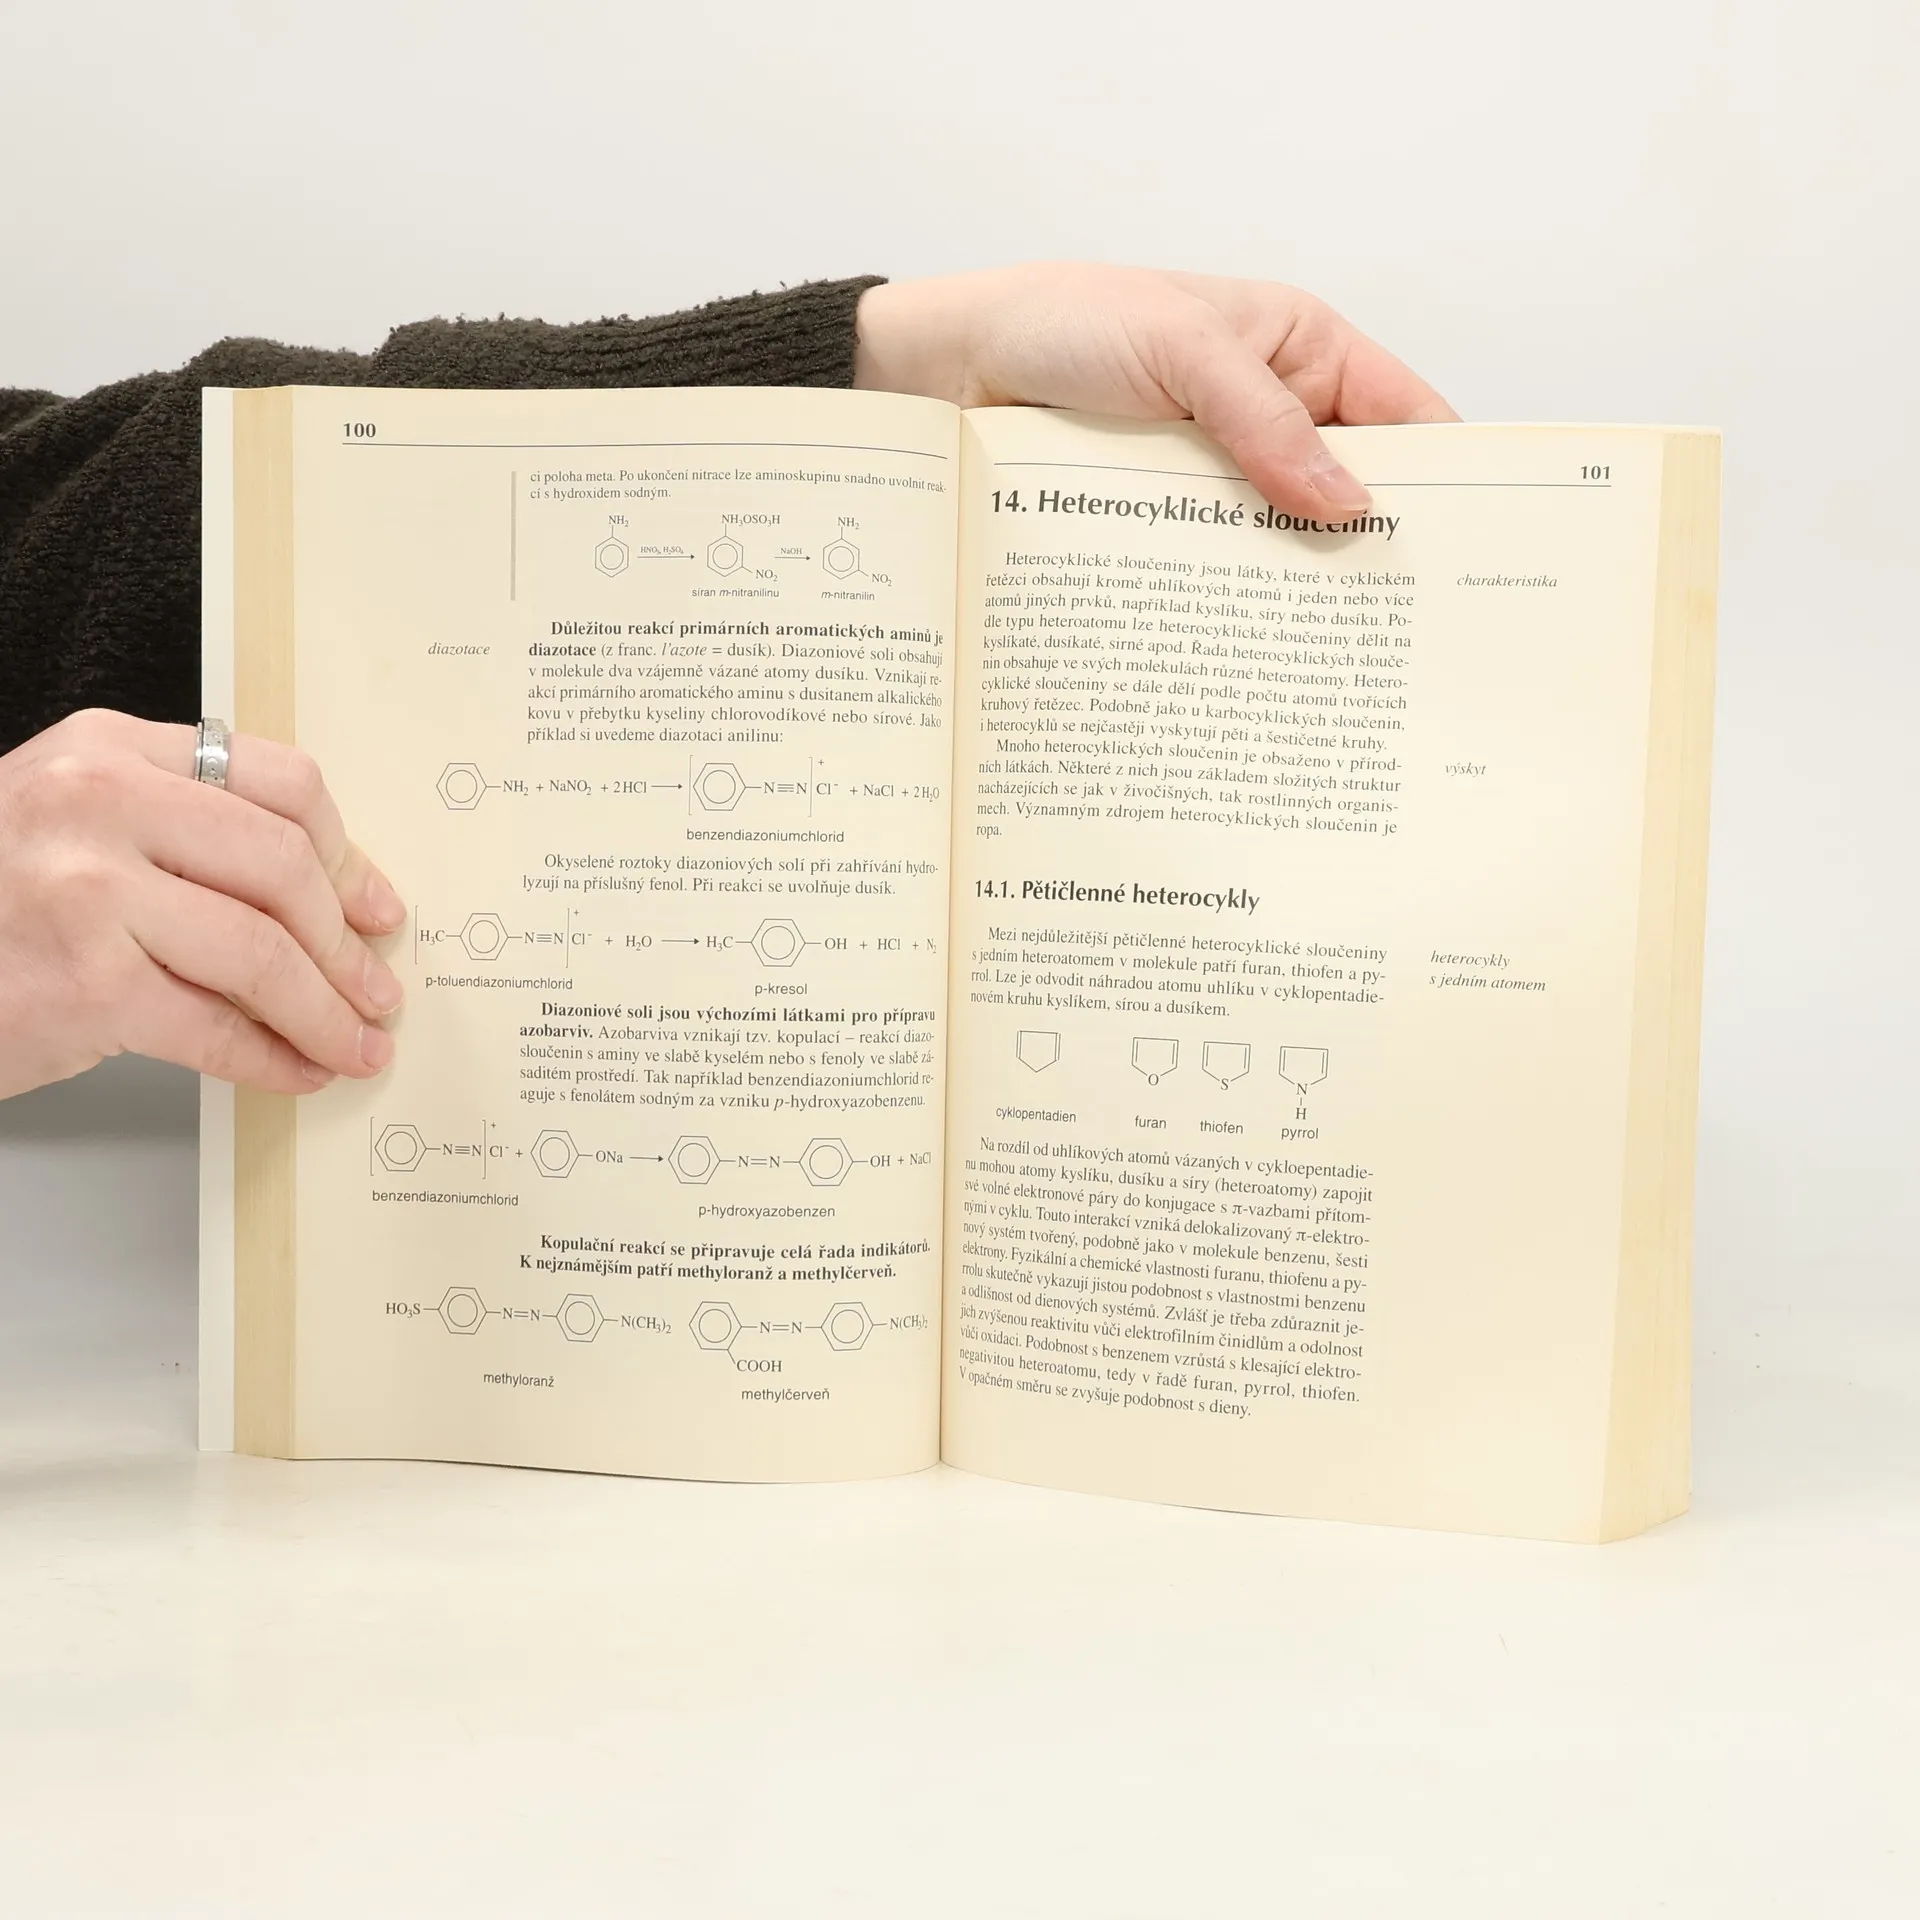 100
ci poloha meta. Po ukončení nitrace lze aminoskupinu snadno uvolnit reak-
cí s hydroxidem sodným.
NH₂ NH₃OSO₃H NH₂
HNO₃, H₂SO₄ NaOH
NO₂ NO₂
síran m-nitranilinu m-nitranilin
Důležitou reakcí primárních aromatických aminů je
diazotace
diazotace (z franc. l'azote = dusík). Diazoniové soli obsahují
v molekule dva vzájemně vázané atomy dusíku. Vznikají re-
akcí primárního aromatického aminu s dusitanem alkalického
kovu v přebytku kyseliny chlorovodíkové nebo sírové. Jako
příklad si uvedeme diazotaci anilinu:
NH₂ + NaNO₂ + 2HCl → [N≡N]⁺ Cl⁻ + NaCl + 2H₂O
benzendiazoniumchlorid
Okyselené roztoky diazoniových solí při zahřívání hydro-
lyzují na příslušný fenol. Při reakci se uvolňuje dusík.
[H₃C N≡N]⁺ Cl⁻ + H₂O → H₃C OH + HCl + N₂
p-toluendiazoniumchlorid p-kresol
Diazoniové soli jsou výchozími látkami pro přípravu
azobarviv. Azobarviva vznikají tzv. kopulací – reakcí diazo-
sloučenin s aminy ve slabě kyselém nebo s fenoly ve slabě zá-
saditém prostředí. Tak například benzendiazoniumchlorid re-
aguje s fenolátem sodným za vzniku p-hydroxyazobenzenu.
[N≡N]⁺ Cl⁻ + ONa → N=N OH + NaCl
benzendiazoniumchlorid p-hydroxyazobenzen
Kopulační reakcí se připravuje celá řada indikátorů.
K nejznámějším patří methyloranž a methylčerveň.
HO₃S N=N N(CH₃)₂ N=N N(CH₃)₂
COOH
methyloranž methylčerveň
101
14. Heterocyklické sloučeniny
Heterocyklické sloučeniny jsou látky, které v cyklickém
charakteristika
řetězci obsahují kromě uhlíkových atomů i jeden nebo více
atomů jiných prvků, například kyslíku, síry nebo dusíku. Po-
dle typu heteroatomu lze heterocyklické sloučeniny dělit na
kyslíkaté, dusíkaté, sirné apod. Řada heterocyklických slouče-
nin obsahuje ve svých molekulách různé heteroatomy. Hetero-
cyklické sloučeniny se dále dělí podle počtu atomů tvořících
kruhový řetězec. Podobně jako u karbocyklických sloučenin,
i heterocyklů se nejčastěji vyskytují pěti a šestičetné kruhy.
Mnoho heterocyklických sloučenin je obsaženo v přírod-
výskyt
ních látkách. Některé z nich jsou základem složitých struktur
nacházejících se jak v živočišných, tak rostlinných organis-
mech. Významným zdrojem heterocyklických sloučenin je
ropa.
14.1. Pětičlenné heterocykly
Mezi nejdůležitější pětičlenné heterocyklické sloučeniny
heterocykly
s jedním atomem
s jedním heteroatomem v molekule patří furan, thiofen a py-
rrol. Lze je odvodit náhradou atomu uhlíku v cyklopentadie-
novém kruhu kyslíkem, sírou a dusíkem.
O S N
H
cyklopentadien furan thiofen pyrrol
Na rozdíl od uhlíkových atomů vázaných v cykloepentadie-
nu mohou atomy kyslíku, dusíku a síry (heteroatomy) zapojit
své volné elektronové páry do konjugace s π-vazbami přítom-
nými v cyklu. Touto interakcí vzniká delokalizovaný π-elektro-
nový systém tvořený, podobně jako v molekule benzenu, šesti
elektrony. Fyzikální a chemické vlastnosti furanu, thiofenu a py-
rrolu skutečně vykazují jistou podobnost s vlastnostmi benzenu
a odlišnost od dienových systémů. Zvlášť je třeba zdůraznit je-
jich zvýšenou reaktivitu vůči elektrofilním činidlům a odolnost
vůči oxidaci. Podobnost s benzenem vzrůstá s klesající elektro-
negativitou heteroatomu, tedy v řadě furan, pyrrol, thiofen.
V opačném směru se zvyšuje podobnost s dieny.